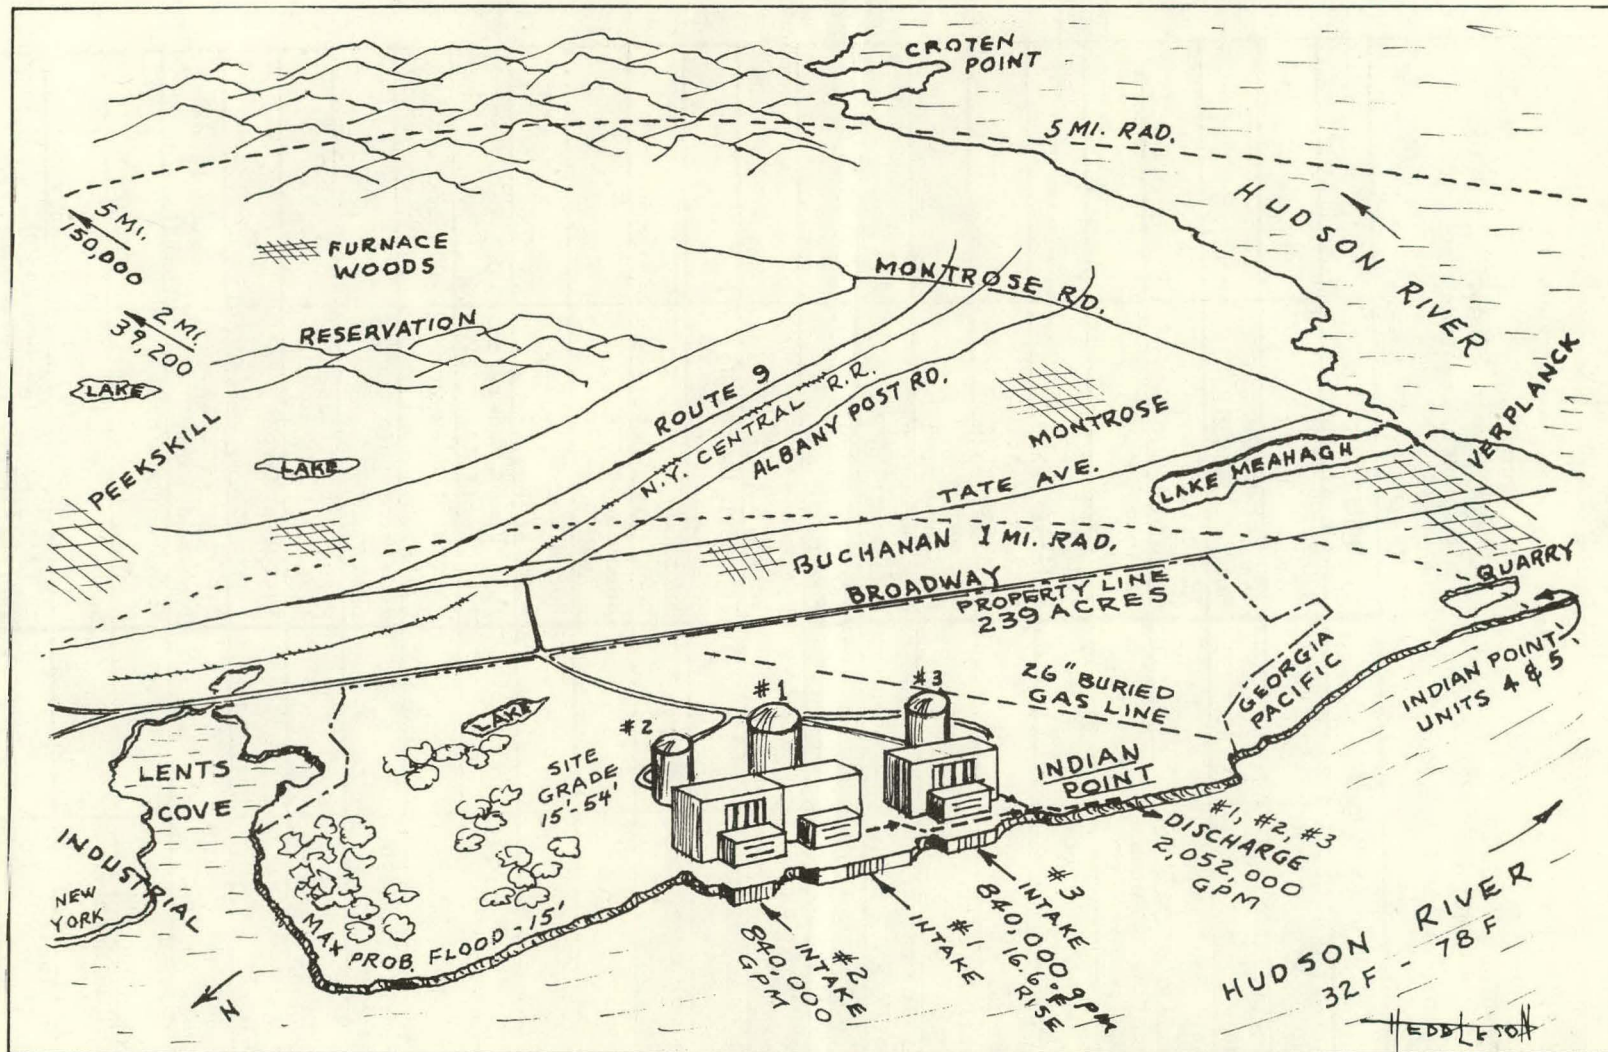 CROTEN
POINT
5 MI. RAD.
HUDSON RIVER
5 MI.
150,000
FURNACE
WOODS
2 MI.
39,200
RESERVATION
MONTROSE RD.
LAKE
ROUTE 9
N.Y. CENTRAL R.R.
ALBANY POST RD.
MONTROSE
VERPLANCK
PEEKSKILL
LAKE
TATE AVE.
LAKE MEAHAGH
BUCHANAN 1 MI. RAD.
QUARRY
BROADWAY
PROPERTY LINE
239 ACRES
GEORGIA
PACIFIC
INDIAN POINT
UNITS 4 & 5
26" BURIED
GAS LINE
#1
#3
#2
LAKE
SITE
GRADE
15'-54'
INDIAN
POINT
LENTS
COVE
INDUSTRIAL
NEW
YORK
MAX PROB. FLOOD - 15'
#1, #2, #3
DISCHARGE
2,052,000
GPM
#2
INTAKE
840,000
GPM
#1
INTAKE
#3
INTAKE
840,000 gpm
16.6°F
RISE
HUDSON RIVER
32F - 78F
N
HEDDLESON